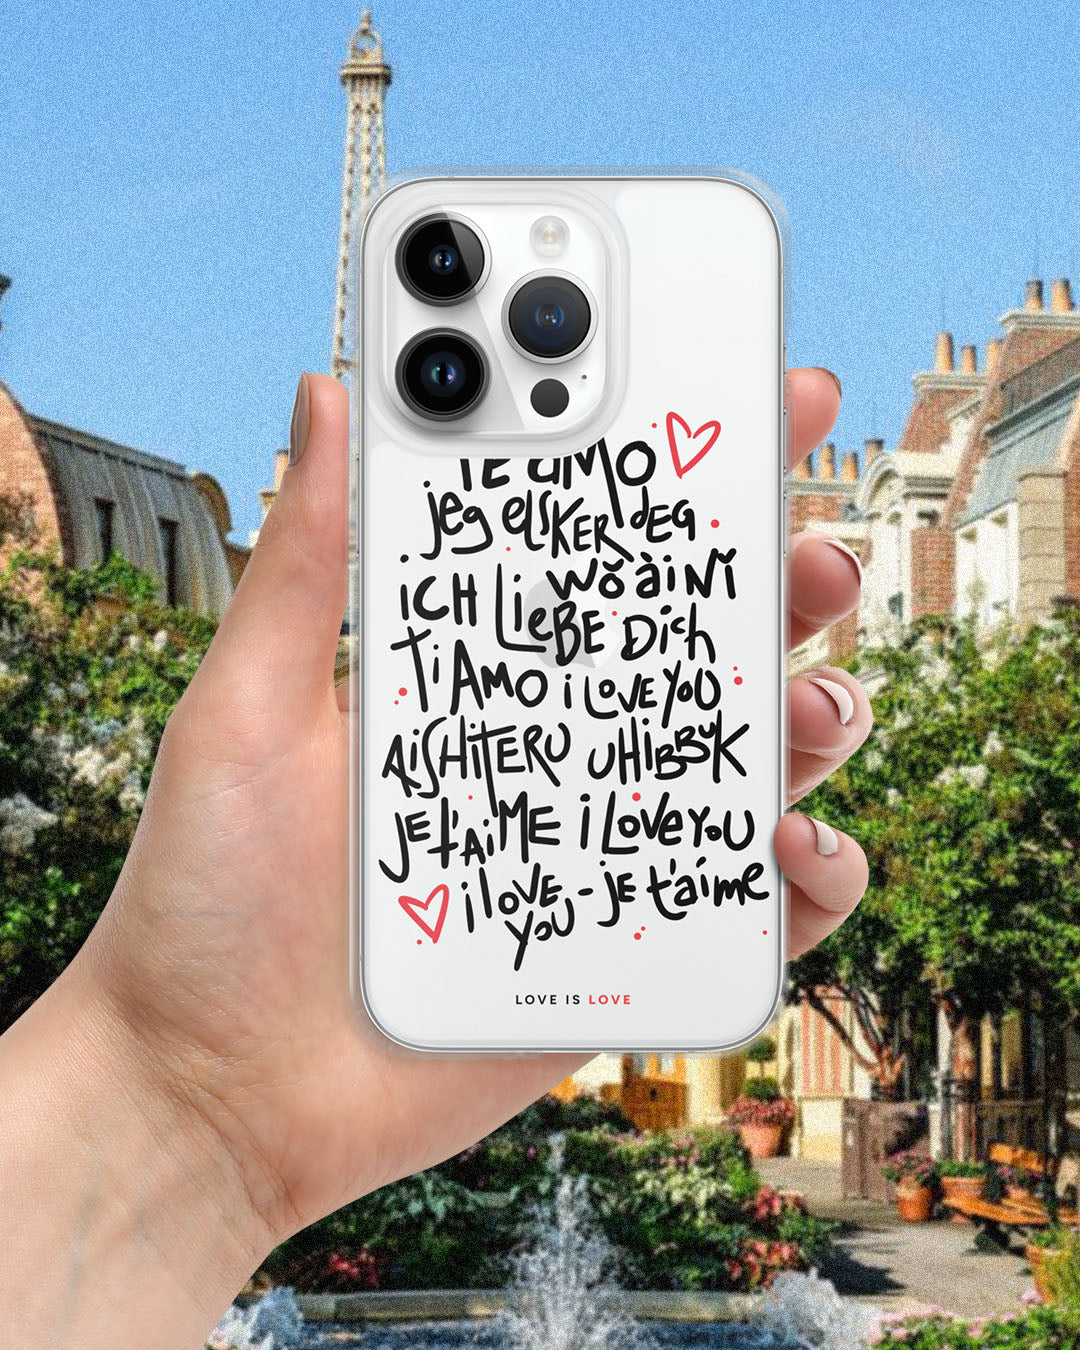 TE aMo
jeg elSKER dEG
wǒ ài Nǐ
ICH LieBE Dich
Ti AMO i LoVE YOU
AiSHiTERU UHiBBUK
JE t'AiME i LoveYoU
i loVE YoU - jE t'aime
LOVE IS LOVE